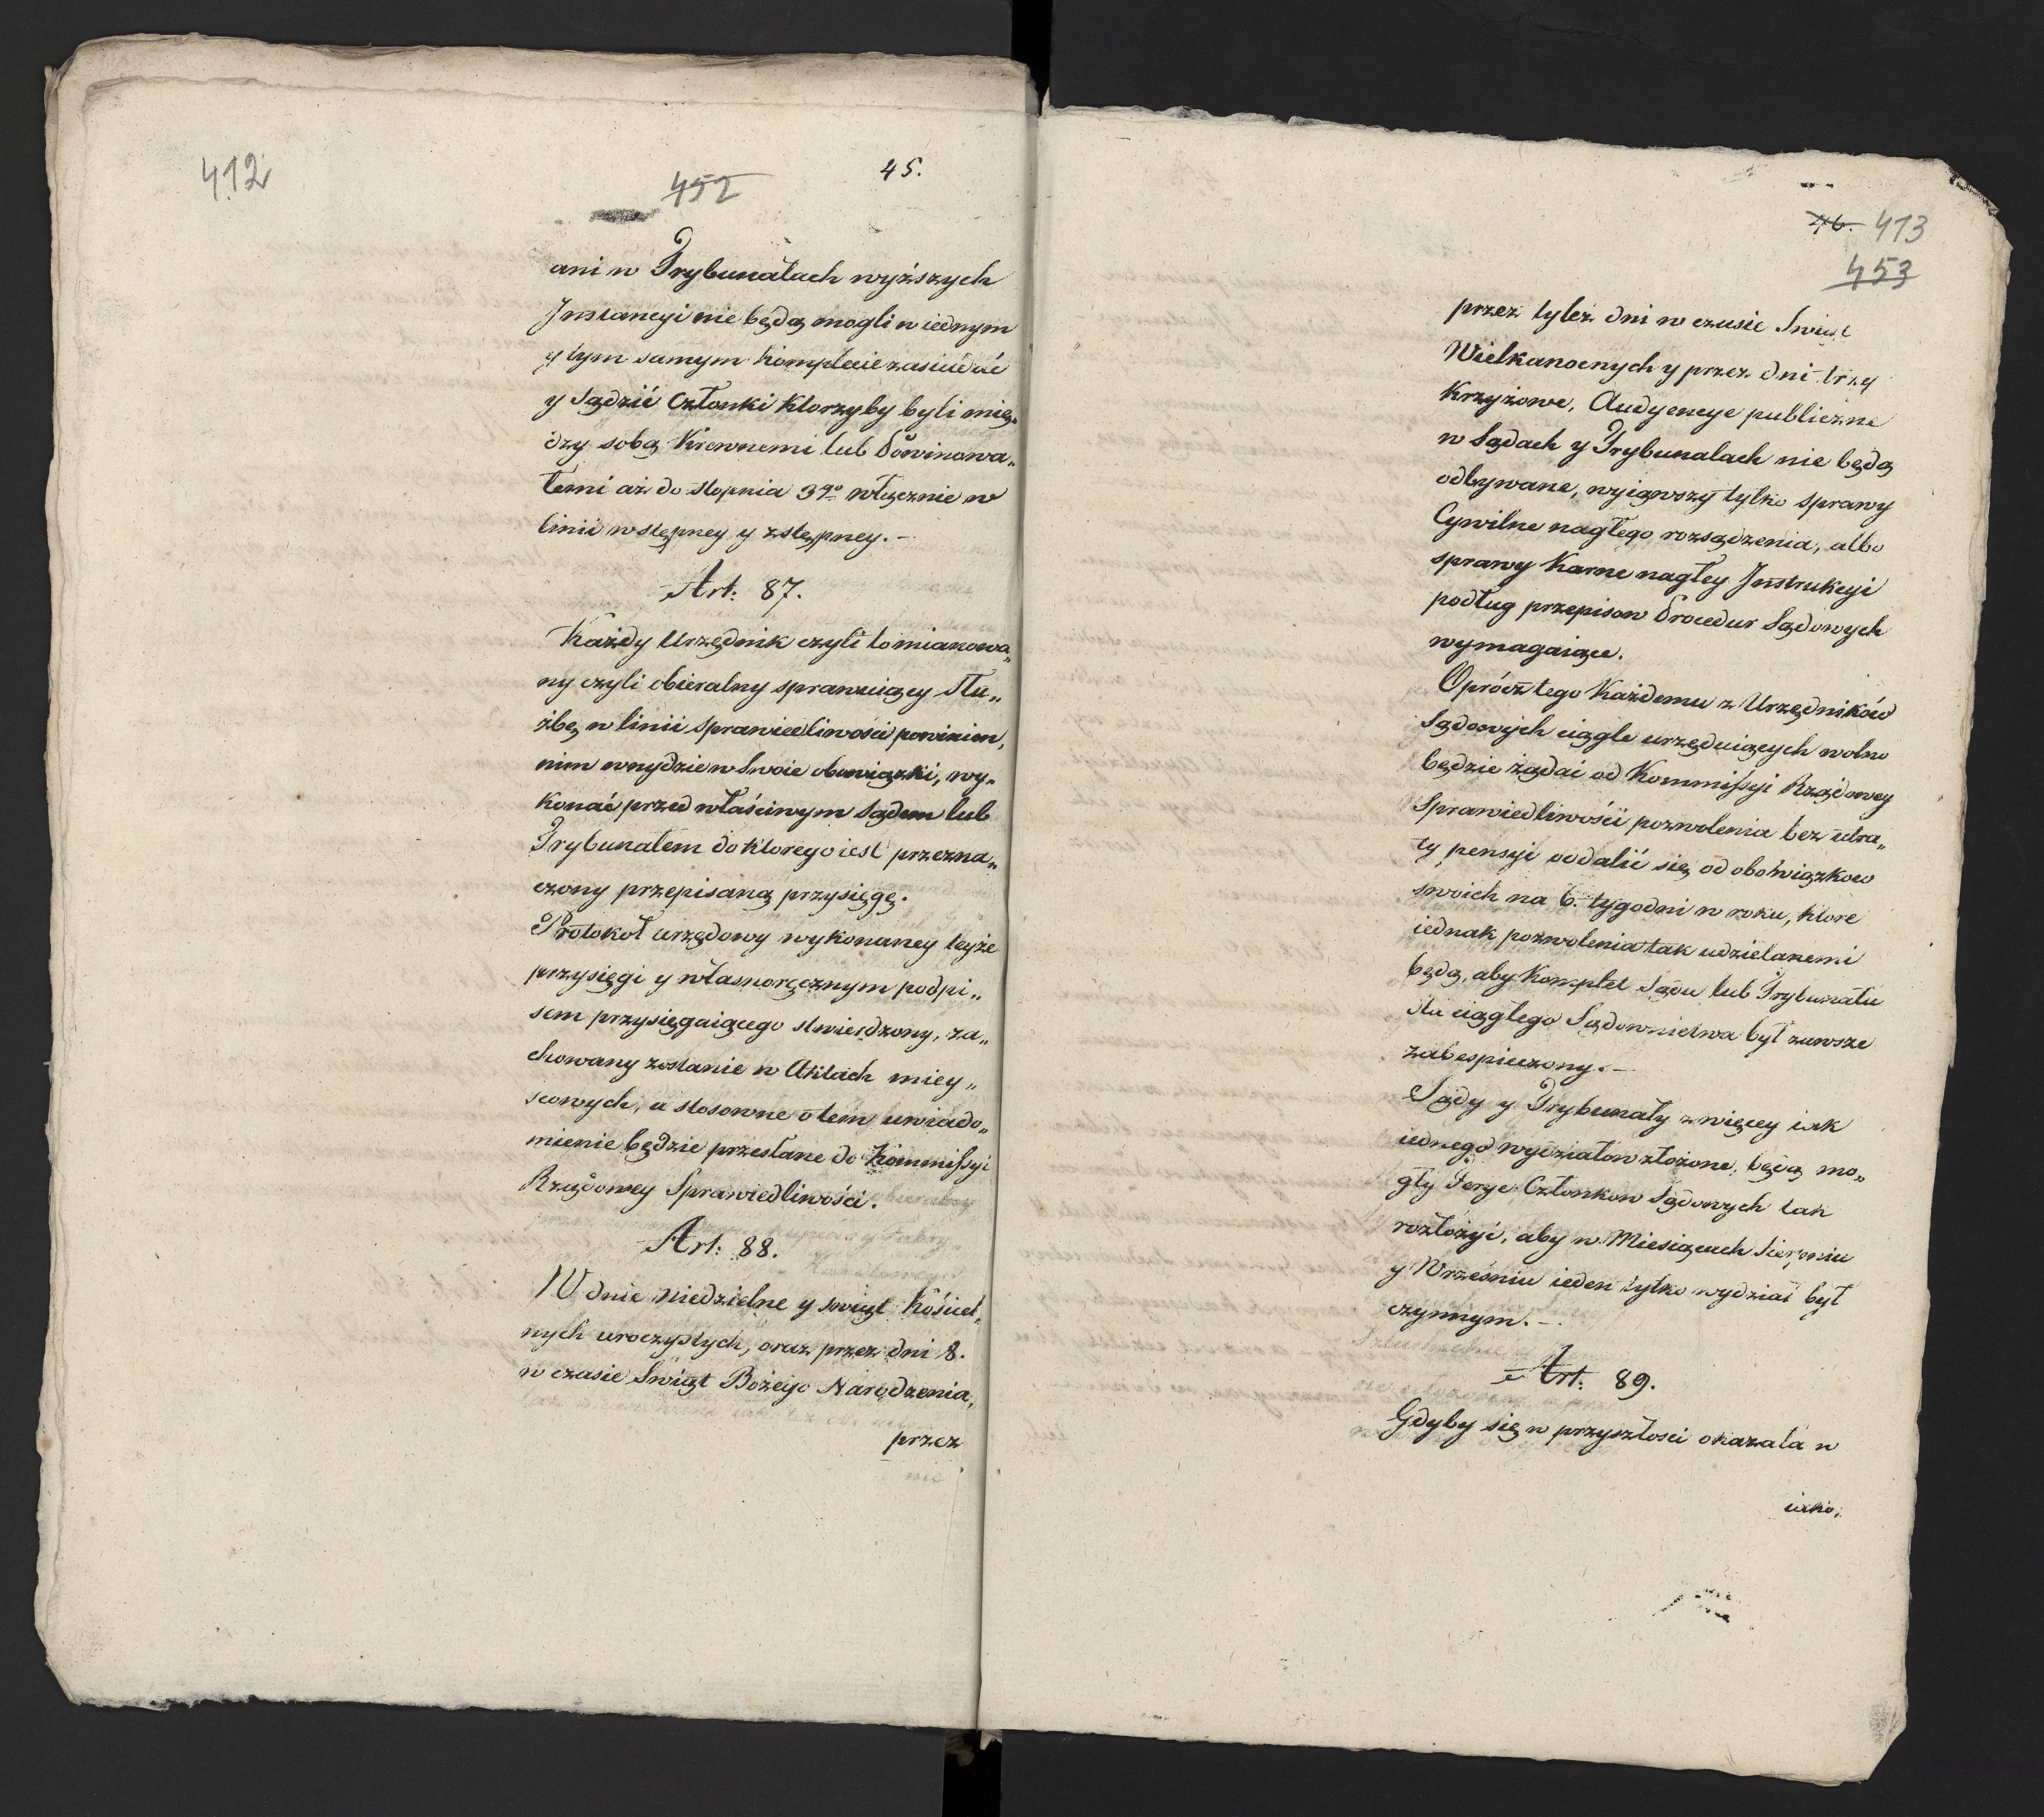 412
452
45.
ani w Trybunałach wyższych
Instancyi nie będą mogli w iednym
y tym samym Komplecie zasiadać
y Sądzić Członki Ktorzyby byli mię„
dzy sobą Krewnemi lub Powinowa„
temi aż do stopnia 3go włącznie w
linii wstępney y zstępney.–
Art: 87.
Każdy Urzędnik czyli to mianowa„
ny czyli obieralny sprawuiący słu„
żbę w linii sprawiedliwości powinien,
nim wnydzie w Swoie obowiązki, wy„
konać przed właściwym Sądem lub
Trybunałem do Ktorego iest przezna„
czony przepisaną przysięgę.
Protokoł urzędowy wykonaney teyże
przysięgi y własnoręcznym podpi„
sem przysięgaiącego stwierdzony, za„
chowany zostanie w Aktach miey„
scowych, a stosowne o tem uwiado„
mienie będzie przesłane do Kommissyi
Rządowey Sprawiedliwości.
Art: 88.
W dnie Niedzielne y swiąt Kościel„
nych uroczystych, oraz przez dni 8.
w czasie Swiąt Bożego Narodzenia,
przez
46. 413
453
przez tyleż dni w czasie Swiąt
Wielkanocnych y przez dni trzy
Krzyżowe, Audyencye publiczne
w Sądach y Trybunalach nie będą
odbywane, wyiąwszy tylko sprawy
Cywilne nagłego rozsądzenia, albo
sprawy Karne nagłey Instrukcyi
podług przepisow Procedur Sądowych
wymagaiące.
Oprócz tego Każdemu z Urzędników
Sądowych ciągle urzęduiących wolno
będzie żądać od Kommissyi Rządowey
Sprawiedliwości pozwolenia bez utra„
ty pensyi oddalić się od obowiązkow
swoich na 6. tygodni w roku, ktore
iednak pozwolenia tak udzielanemi
będą, aby Komplet Sądu lub Trybunału
dla ciągłego Sądownictwa był zawsze
zabespieczony.–
Sądy y Trybunały z więcey iak
iednego wydziałow złożone, będą mo„
gły Ferye Członkow Sądowych tak
rozłożyć, aby w Miesiącach Sierpniu
y Wrześniu ieden tylko wydział był
czynnym.–
Art: 89.
Gdyby się w przyszłosci okazała w
iako,